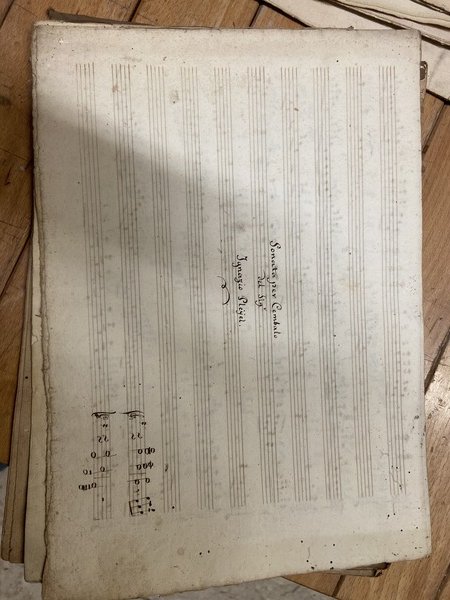 Sonata per Cembalo
del Sigr
Ignazio Pleyel.